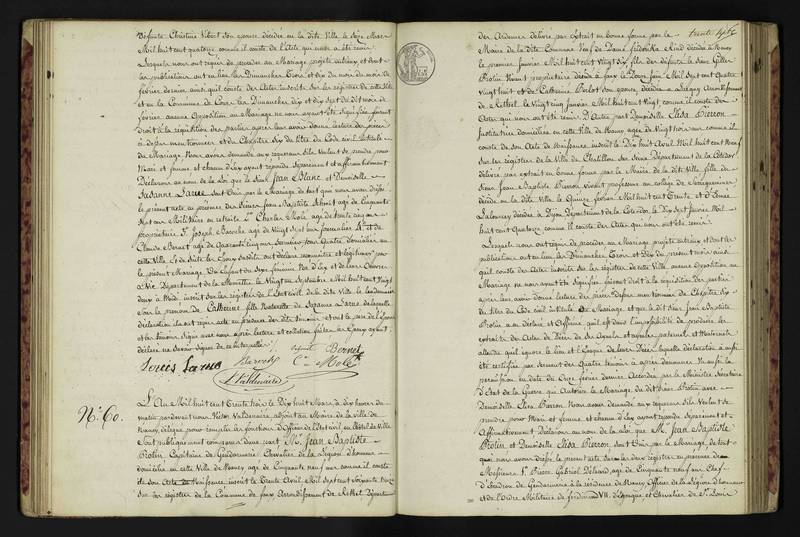 défunte Christine Vibert son épouse décédée en la dite Ville, le Seize Mars
Mil huit cent quatorze comme il conste de l'acte qui nous a été remis
Lesquels nous ont requis de procéder au Mariage projeté entr'eux et dont
les publications ont eu lieu les Dimanches trois et dix du mois de
février dernier ainsi qu'il conste des Actes inscrits sur les registres de cette Ville
et en la Commune de les Dimanches dix et dix sept du dit mois de
février aucune Opposition au Mariage ne nous ayant été Signifiée faisant
droit à la réquisition des parties après leur avoir donné lecture des pièces
ci dessus mentionnées et du Chapitre Six du titre du Code civil intitulé
du Mariage Nous avons demandé aux requérans s'ils veulent se prendre pour
Mari et femme et chacun d'eux ayant répondu Séparément et affirmativement
Déclarons au nom de la Loi que le Sieur Jean Blanc et Demoiselle
Susanne Larue sont Unis par le Mariage de tout quoi nous avons dressé
le présent acte en présence des Sieurs Jean Baptiste Schmit agé de Cinquante
Sept ans Militaire en retraite Charles Mole agé de trente cinq ans
propriétaire Joseph Barroche agé de Vingt Sept ans journalier et de
Claude Bernet agé de Quarante Cinq ans Serrurier tous Quatre domiciliés en
cette Ville Et de Suite les Epoux susdits ont déclaré reconnaître et légitimer par
le présent Mariage Un Enfant du Sexe féminin Né d'Eux et de leurs Oeuvres
à Vic Département de la Meurthe le Vingt un Septembre Mil huit cent Vingt
deux à Midi inscrit Sur les registres de l'Etat civil de la dite Ville le lendemain
Sous les prénoms de Catherine fille Naturelle de Suzanne Larue de laquelle
déclaration il a été requis acte en présence des dits témoins et ont les père de l'Epouse
et les témoins Signé avec nous après lecture et collation faites les Epoux ayant
déclaré ne savoir signer de ce interpellés
Louis Larue Barroche Schmit Bernet
Ch. Mole
Valdenaire
N.o 60.
L'An Mil huit cent Trente Neuf le Dix huit Mars, à Dix heures du
matin pardevant nous Victor Valdenaire adjoint au Maire de la Ville de
Nancy, délégué pour remplir les fonctions d'Officier de l'Etat civil en l'hôtel de Ville
Sont publiquement comparus d'une part M. Jean Baptiste
Piotin Capitaine de Gendarmerie Chevalier de la Légion d'honneur
domicilié en cette Ville de Nancy agé de Cinquante Neuf ans comme il conste
de son Acte de Naissance inscrit le Trente Avril Mil Sept cent Soixante
Sur les registres de la Commune de Arrondissement de Rethel Département
trente sept
des Ardennes délivré par Extrait en bonne forme par le
Maire de la dite Commune Veuf de Dame Frédérika Kind décédée à Nancy
le premier Janvier Mil huit cent Vingt dix fils des défunts le Sieur Gilles
Piotin Vivant propriétaire décédé à le Douze Juin Mil Sept cent Quatre
Vingt huit et de Catherine Berlot son épouse, décédée à Arrondissement
de Rethel le Vingt cinq Janvier Mil huit cent Vingt, comme il conste des
Actes qui nous ont été remis D'Autre part Demoiselle Elisa Pierron
Institutrice domiciliée en cette Ville de Nancy agée de Vingt Neuf ans comme il
conste de son Acte de Naissance inscrit le Dix huit Avril Mil huit cent Neuf
Sur les registres de la Ville de Chatillon sur Seine Département de la Côte d'or
délivré par extrait en bonne forme par le Maire de la dite Ville fille du
Sieur Jean Baptiste Pierron Vivant professeur au collège de Sarreguemines
décédé en la dite Ville le Quinze février Mil huit cent Trente et D'Edmée
Lalouvey décédée à Dijon, Département de la Côte d'or, le Dix sept Janvier Mil
huit cent Quatorze comme il conste des Actes qui nous ont été remis
Lesquels nous ont requis de procéder au Mariage projeté entr'eux et dont les
publications ont eu lieu les Dimanches Trois et Dix du présent mois ainsi
qu'il conste des Actes inscrits sur les registres de cette Ville aucune Opposition au
Mariage ne nous ayant été Signifiée faisant droit à la réquisition des parties
après leur avoir donné lecture des pièces dessus mentionnées du Chapitre Six
du titre du Code civil intitulé du Mariage et que le dit Sieur Jean Baptiste
Piotin a en déclaré et Affirmé qu'il est dans l'impossibilité de produire les
extraits des Actes de Décès de Ses Ayeuls et ayeules paternels et Maternels
attendu qu'il ignore le lieu et l'Epoque de leurs Décès laquelle déclaration a aussi
été certifiée par serment des Quatre témoins ci après dénommés Vu aussi la
permission en date du Onze février dernier Accordée par le Ministre Secrétaire
d'Etat de la Guerre qui Autorise le Mariage du dit Sieur Piotin avec
Demoiselle Elisa Pierron Nous avons demandé aux requérans s'ils Veulent se
prendre pour Mari et femme et chacun d'Eux ayant répondu Séparément et
Affirmativement Déclarons au nom de la Loi que M. Jean Baptiste
Piotin et Demoiselle Elisa Pierron sont Unis par le Mariage de tout
quoi nous avons dressé le présent acte Sur les deux registres en présence de
Messieurs Pierre Gabriel Deland agé de Cinquante neuf ans Chef
d'Escadron de Gendarmerie à la résidence de Nancy Officier de la Légion d'honneur
et de l'Ordre Militaire de ferdinand VII. d'Espagne et Chevalier de St Louis